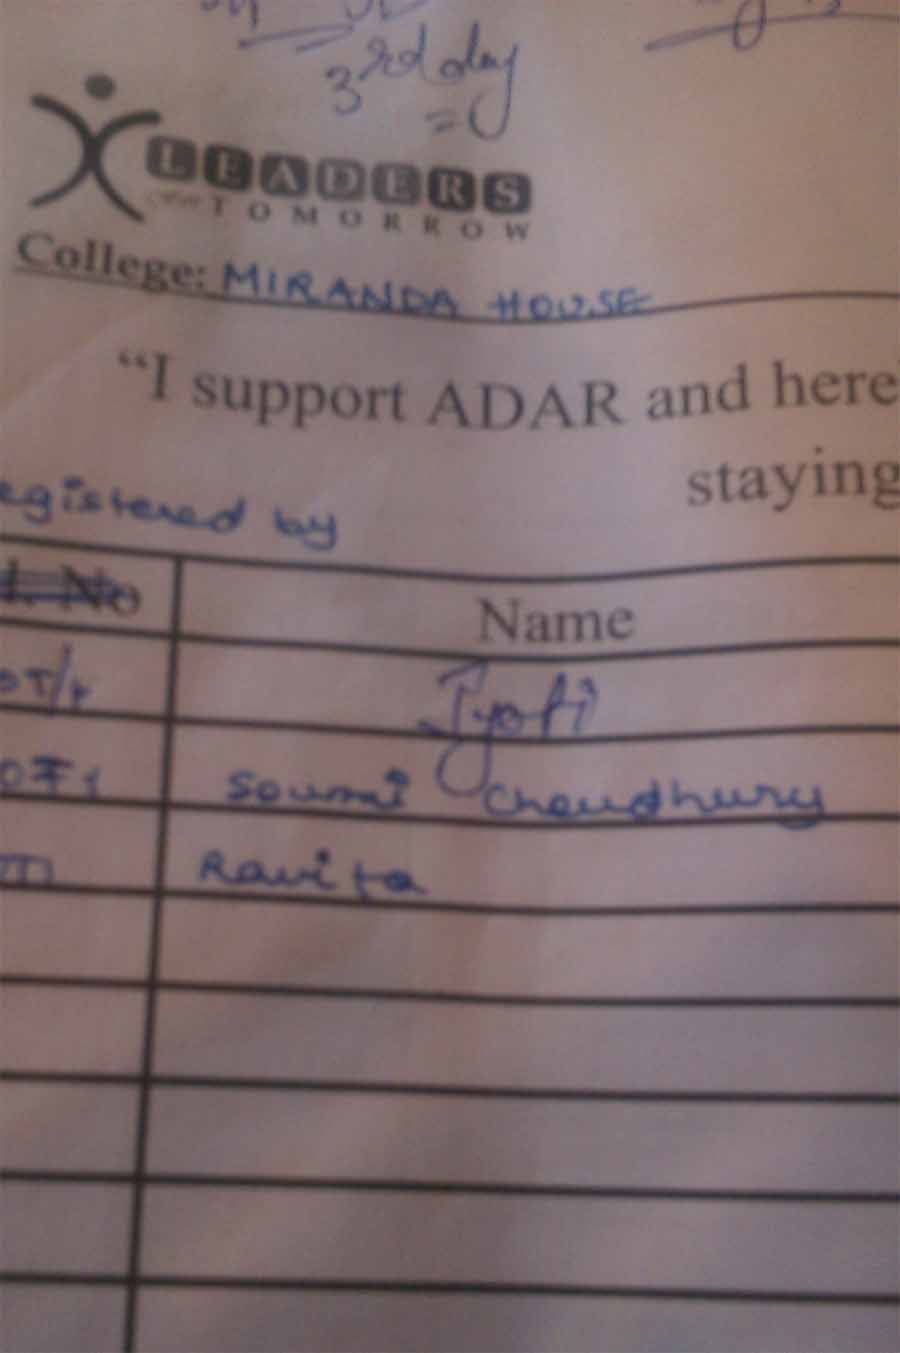 3rd day
LEADERS
TOMORROW
College: MIRANDA HOUSE
“I support ADAR and here
staying
egistered by
No Name
Jyoti
Soumi Choudhury
Ravita